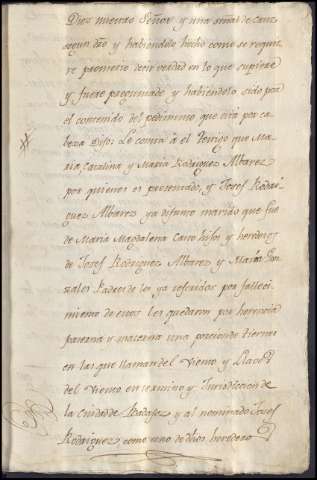 Dios nuestro Señor y una señal de Cruz
segun dro y habiendolo hecho como se requie
re prometio decir verdad en lo que supiere
y fuere preguntado y habiendolo sido por
el contenido del pedimento que está por ca
beza Dijo: Le consta á el testigo que Ma
ria, Catalina y Maria Rodriguez Albarez
por quienes es presentado, y Josef Rodri
guez Albarez ya difunto marido que fue
de Maria Magdalena Caro hijos y herederos
de Josef Rodriguez Albarez y Maria Gon
zales Padres de los ya referidos por falleci
miento de estos les quedaron por herencia
paterna y materna una porcion de tierras
en las que llaman del Viento y
del Viento en termino y Jurisdiccion de
la Ciudad de Badajoz y al nominado Josef
Rodriguez como uno de dhos herederos